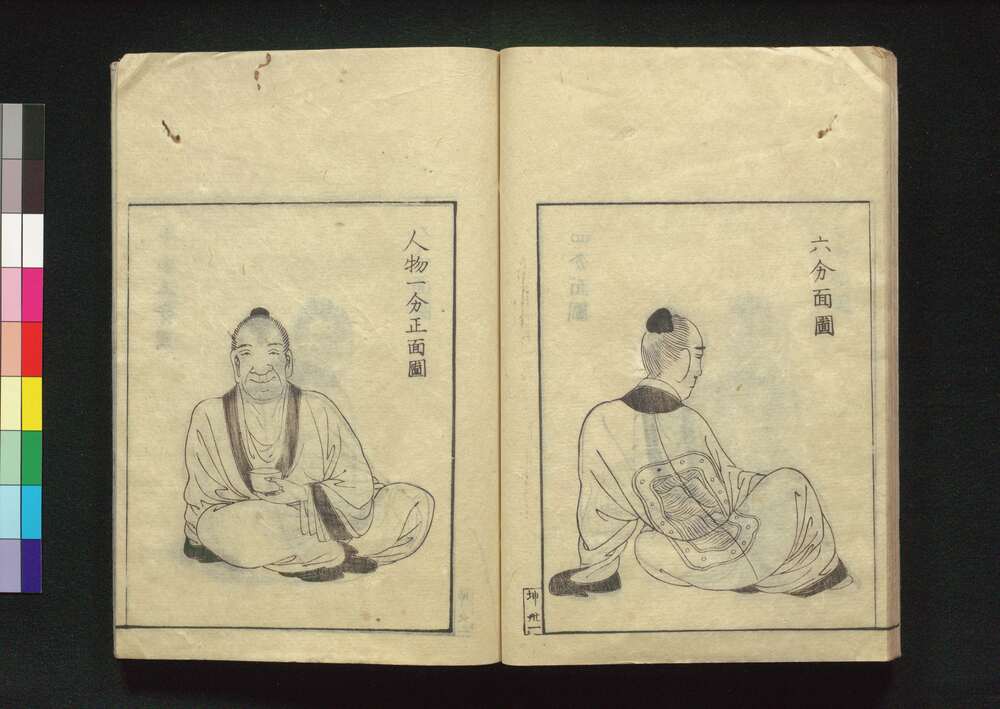 六分面圖
人物一分正面圖
坤 卅一